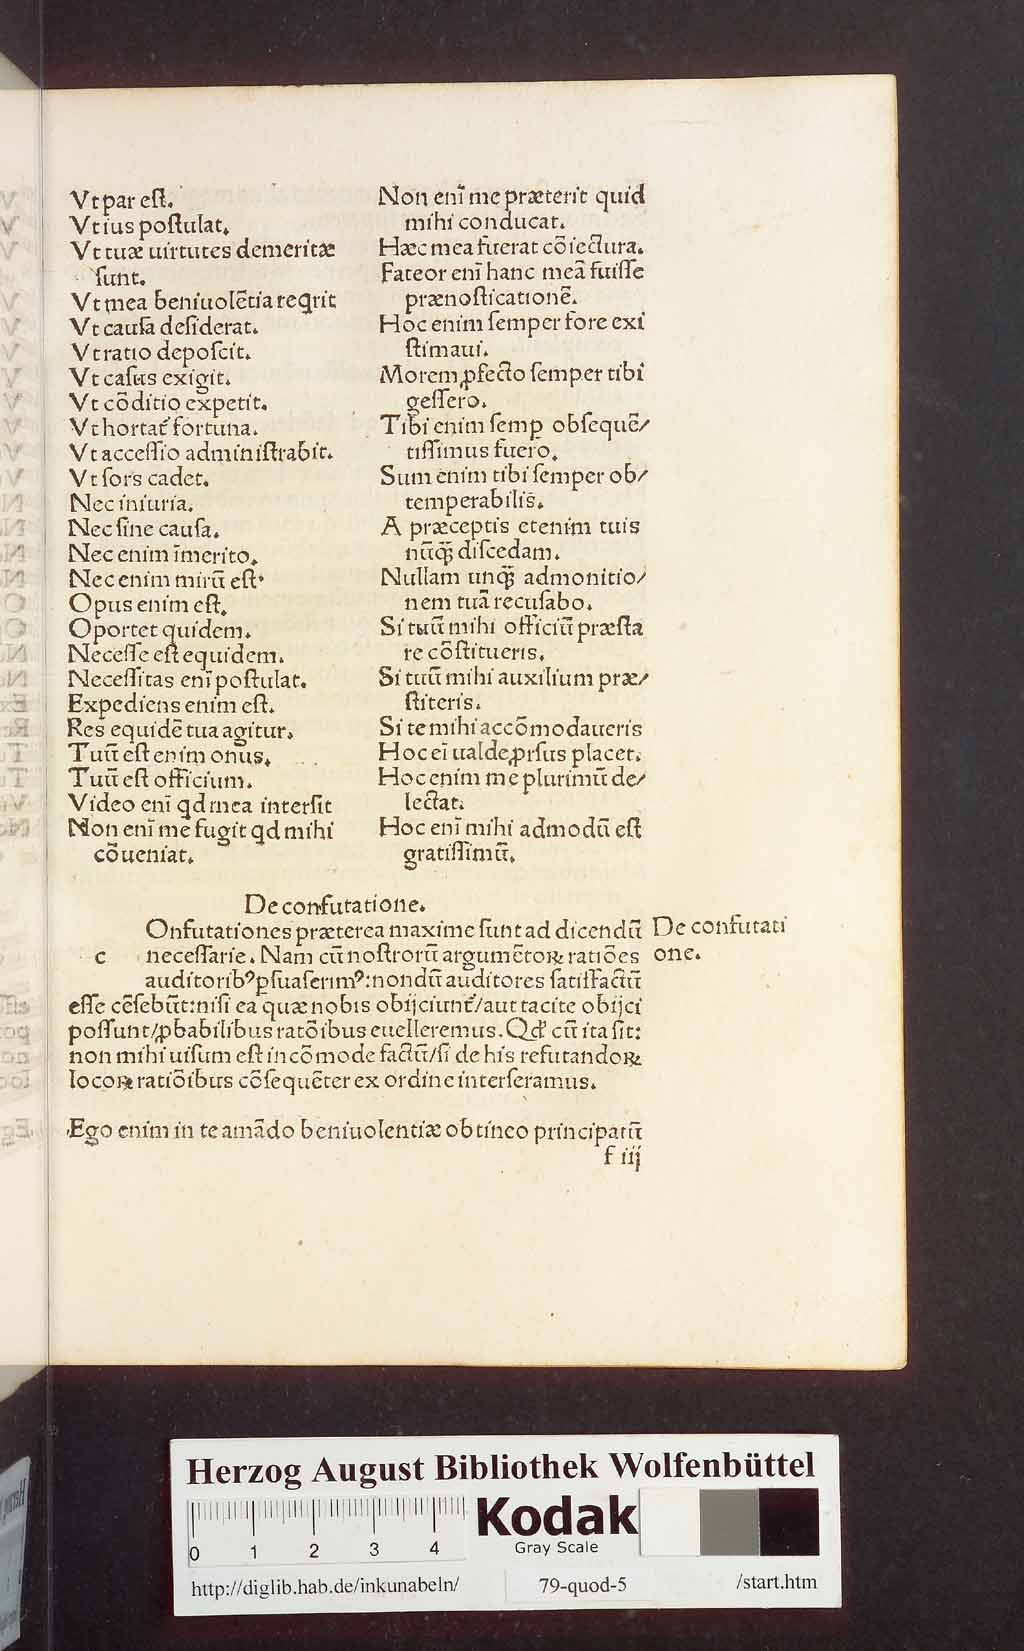 Vt par eſt.
Vt ius poſtulat.
Vt tuæ uirtutes demeritæ
ſunt.
Vt mea beniuolẽtia reqrit
Vt cauſa deſiderat.
Vt ratio depoſcit.
Vt caſus exigit.
Vt cõditio expetit.
Vt hortat᷑ fortuna.
Vt acceſſio adminiſtrabit.
Vt ſors cadet.
Nec iniuria.
Nec ſine cauſa.
Nec enim ĩmerito.
Nec enim mirũ eſt.
Opus enim eſt.
Oportet quidem.
Neceſſe eſt equidem.
Neceſſitas enĩ poſtulat.
Expediens enim eſt.
Res equidẽ tua agitur.
Tuũ eſt enim onus.
Tuũ eſt officium.
Video enĩ qd mea interſit
Non enĩ me fugit qd mihi
cõueniat.
Non enĩ me præterit quid
mihi conducat.
Hæc mea fuerat cõiectura.
Fateor enĩ hanc meã fuiſſe
prænoſticationẽ.
Hoc enim ſemper fore exi
ſtimaui.
Morem ꝓfecto ſemper tibi
geſſero.
Tibi enim ſemꝑ obſequẽ/
tiſſimus fuero.
Sum enim tibi ſemper ob/
temperabilis.
A præceptis etenim tuis
nũꝙ̃ diſcedam.
Nullam unꝙ̃ admonitio/
nem tuã recuſabo.
Si tuũ mihi officiũ præſta
re cõſtitueris.
Si tuũ mihi auxilium præ/
ſtiteris.
Si te mihi accõmodaueris
Hoc eĩ ualde ꝓrſus placet.
Hoc enim me plurimũ de/
lectat.
Hoc enĩ mihi admodũ eſt
gratiſſimũ.
De confutatione.
Onfutationes præterea maxime ſunt ad dicendũ
De confutati
one.
c neceſſarie. Nam cũ noſtrorũ argumẽtoꝝ ratiões
auditoribꝰ ꝑſuaſerimꝰ: nondũ auditores ſatiſfactũ
eſſe cẽſebũt: niſi ea quæ nobis obijciunt᷑/ aut tacite obijci
poſſunt/ ꝓbabilibus ratõibus euelleremus. Qđ cũ ita ſit:
non mihi uiſum eſt incõmode factũ/ ſi de his refutandoꝝ
locoꝝ ratiõibus cõſequẽter ex ordine interſeramus.
Ego enim in te amãdo beniuolentiæ obtineo principatũ
f iij
Herzog August Bibliothek Wolfenbüttel
0 1 2 3 4
Kodak
Gray Scale
http://diglib.hab.de/inkunabeln/ 79-quod-5 /start.htm